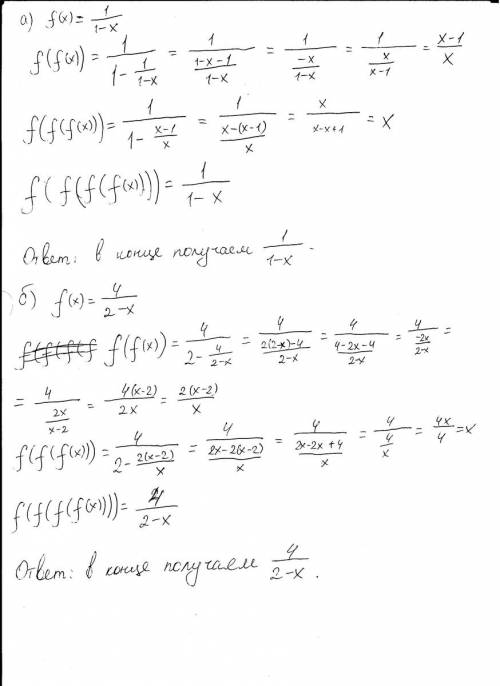 а) f(x) = 1/(1-x)
f(f(x)) = 1/(1 - 1/(1-x)) = 1/((1-x-1)/(1-x)) = 1/((-x)/(1-x)) = 1/(x/(x-1)) = (x-1)/x
f(f(f(x))) = 1/(1 - (x-1)/x) = 1/((x-(x-1))/x) = x/(x-x+1) = x
f(f(f(f(x)))) = 1/(1-x)
Ответ: в конце получаем 1/(1-x).
б) f(x) = 4/(2-x)
f(f(x)) = 4/(2 - 4/(2-x)) = 4/((2(2-x)-4)/(2-x)) = 4/((4-2x-4)/(2-x)) = 4/((-2x)/(2-x)) =
= 4/(2x/(x-2)) = 4(x-2)/2x = 2(x-2)/x
f(f(f(x))) = 4/(2 - 2(x-2)/x) = 4/((2x-2(x-2))/x) = 4/((2x-2x+4)/x) = 4/(4/x) = 4x/4 = x
f(f(f(f(x)))) = 4/(2-x)
Ответ: в конце получаем 4/(2-x).